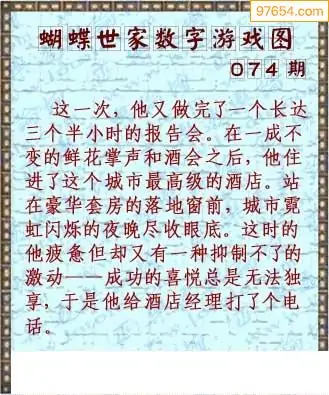 97654.com
蝴蝶世家数字游戏图
074 期
这一次，他又做完了一个长达
三个半小时的报告会。在一成不
变的鲜花掌声和酒会之后，他住
进了这个城市最高级的酒店。站
在豪华套房的落地窗前，城市霓
虹闪烁的夜晚尽收眼底。这时的
他疲惫但却又有一种抑制不了的
激动——成功的喜悦总是无法独
享，于是他给酒店经理打了个电
话。